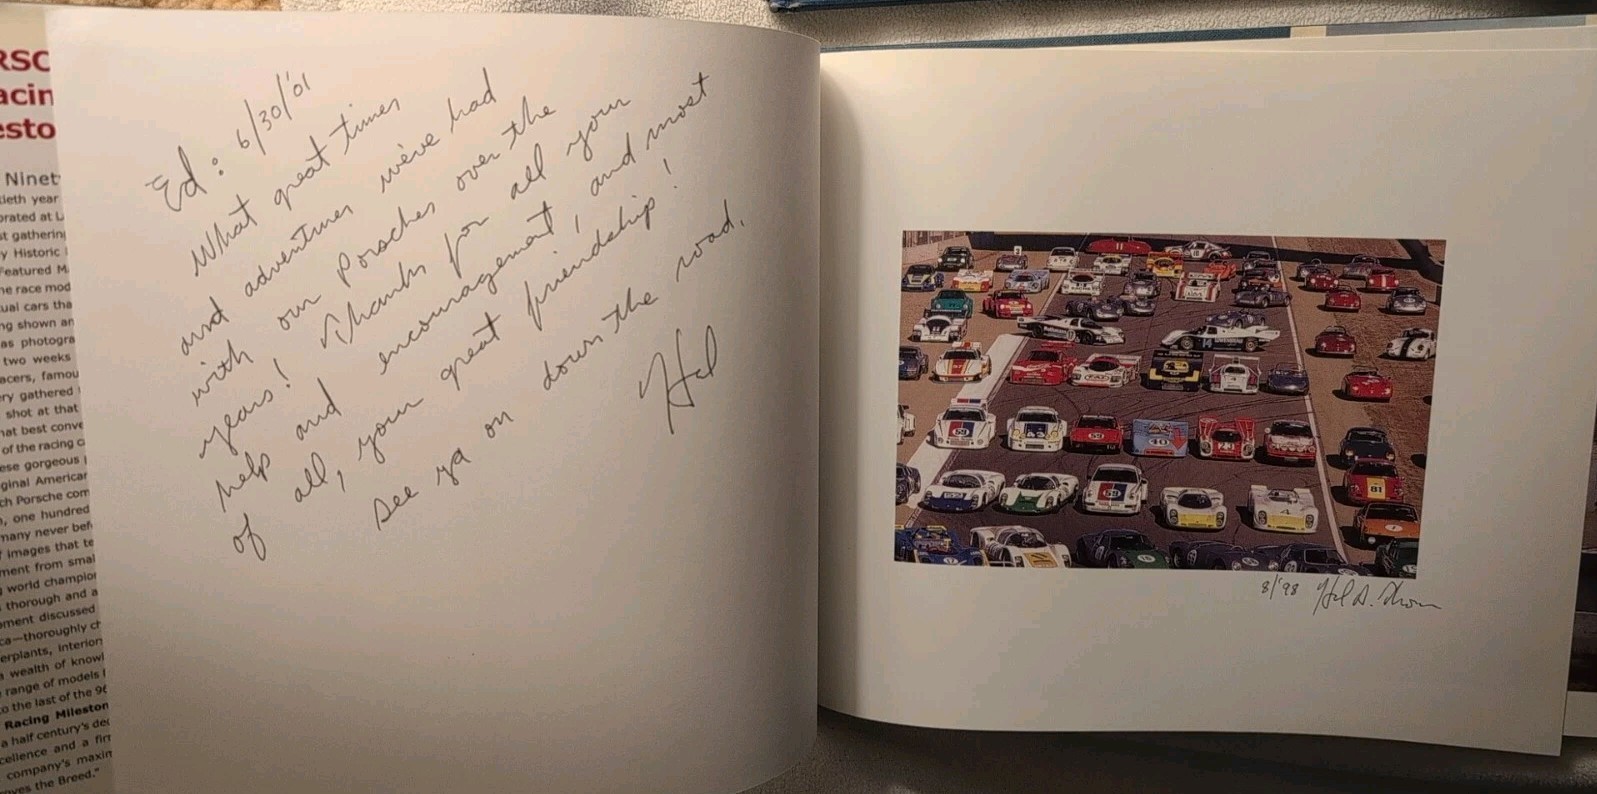 RSC
acin
esto
Ninet
tieth year
orated at L
st gathering
y Historic
Featured M
he race mod
ual cars tha
ng shown an
as photogra
two weeks
acers, famou
ry gathered
shot at that
hat best conve
of the racing c
ese gorgeous
ginal American
ch Porsche com
, one hundred
many never bef
f images that te
ment from smal
world champion
thorough and a
pment discussed
ca—thoroughly ch
erplants, interior
a wealth of knowl
range of models
to the last of the 96
Racing Mileston
a half century's dec
cellence and a firm
company's maxim
roves the Breed."
Ed: 6/30/'01
What great times
and adventures we've had
with our Porsches over the
years! Thanks for all your
help and encouragement, and most
of all, your great friendship!
See ya on down the road.
Hal
59
59
40
23
59
81
14
8/'98 Hal A. Thoms